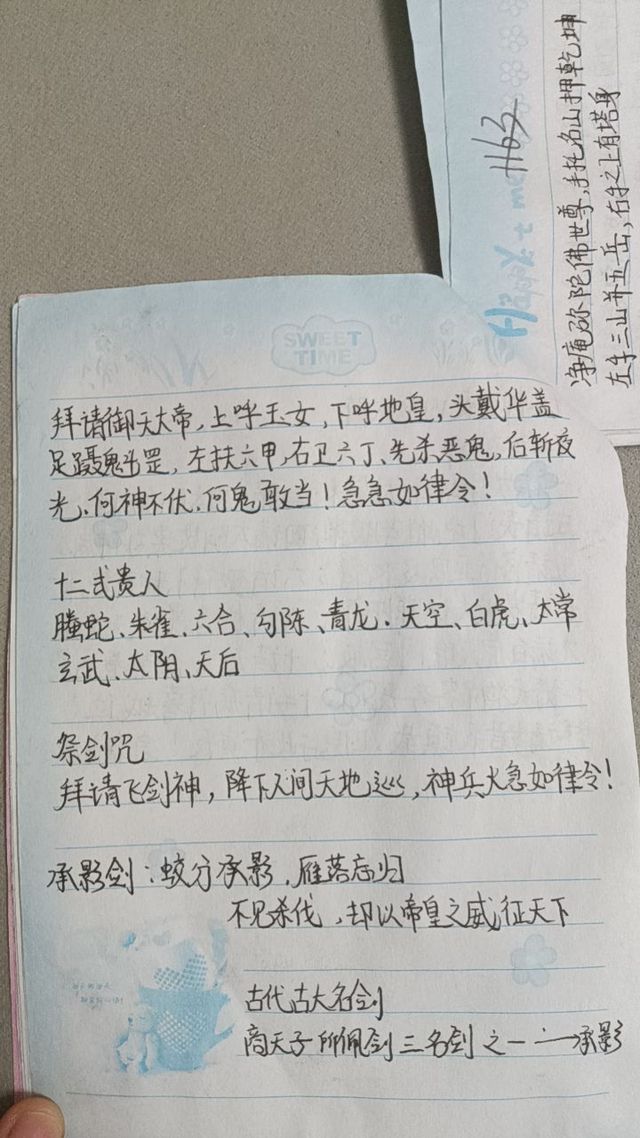 拜请御天大帝，上呼玉女，下呼地皇，头戴华盖
足蹑魁罡，左扶六甲，右卫六丁、先杀恶鬼，后斩夜
光，何神不伏，何鬼敢当！急急如律令！
十二式贵人
螣蛇、朱雀、六合、勾陈、青龙、天空、白虎、太常
玄武、太阴、天后
祭剑咒
拜请飞剑神，降下人间天地巡，神兵火急如律令！
承影剑：蛟分承影，雁落忘归
不见杀伐，却以帝皇之威征天下
古代古大名剑
商天子所佩剑三名剑之一：一承影
SWEET
TIME
1163
净庵弥陀佛世尊，手托名山押乾坤
左手三山并五岳，右手之上有塔身